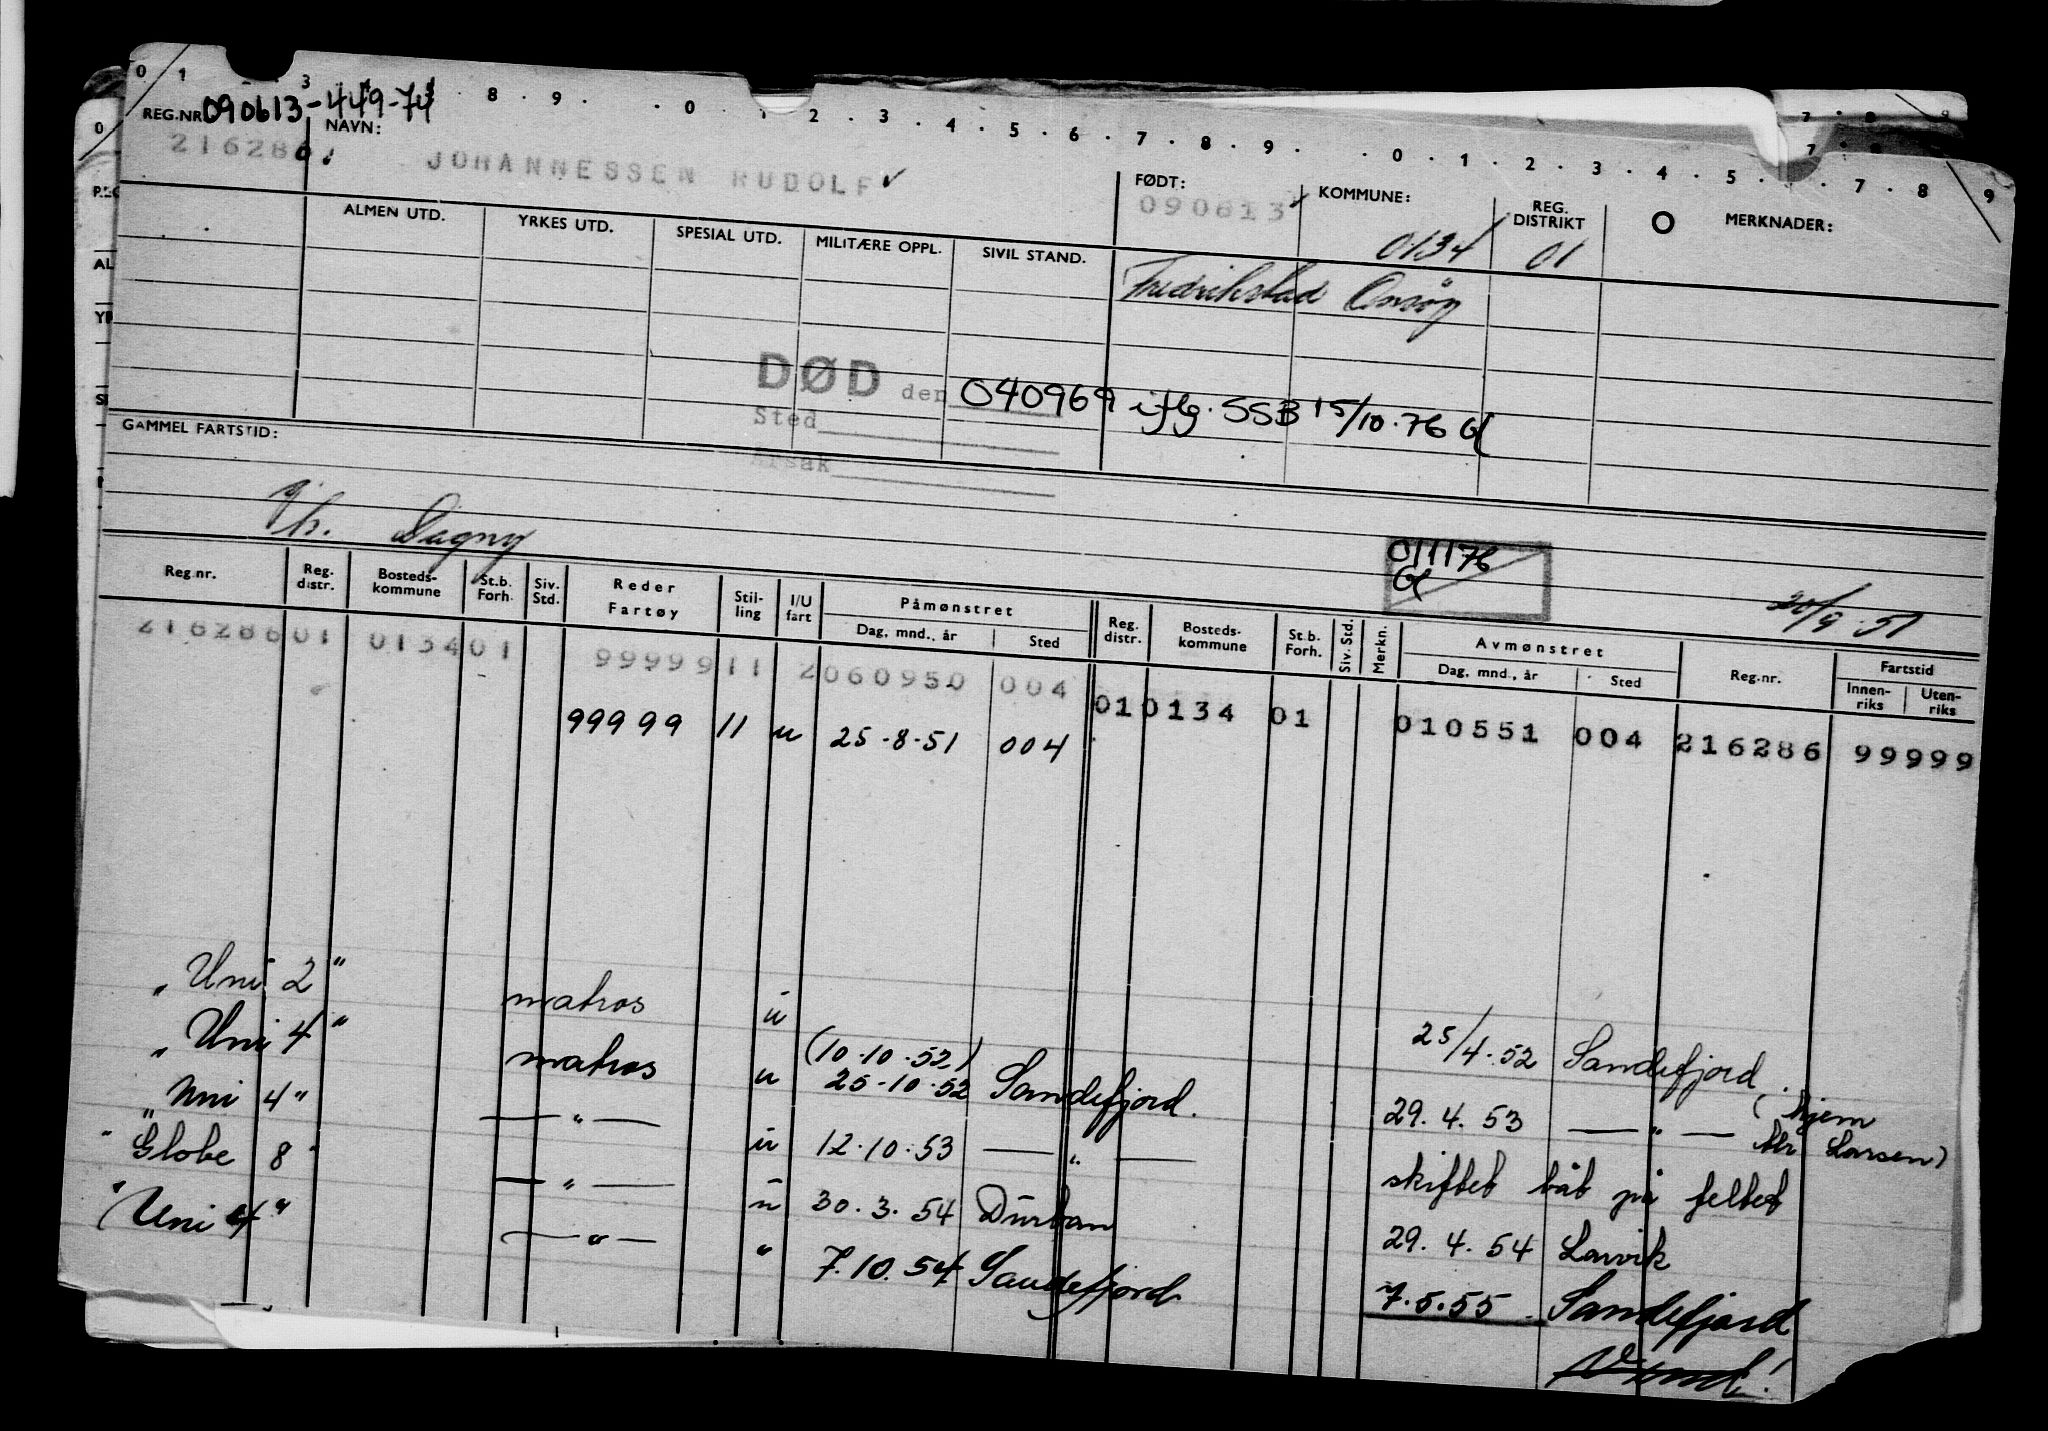 0 1 3 8 9 0 1 2 3 4 5 6 7 8 9 0 1 2 3 4 5 7 8 9
REG.NR. 090613-449-74
NAVN:
216286 JOHANNESSEN RUDOLF
FØDT: KOMMUNE: REG. DISTRIKT MERKNADER:
090613 0134 01
ALMEN UTD. YRKES UTD. SPESIAL UTD. MILITÆRE OPPL. SIVIL STAND.
Fredrikstad Onsøy
DØD den 040969 iflg. SSB 15/10.76
Sted
Årsak
GAMMEL FARTSTID:
Dagny
011176
20/9.51
Reg.nr. Reg. distr. Bosteds-kommune St.b. Forh. Siv. Std. Reder Fartøy Stil-ling I/U fart Påmønstret Dag, mnd., år Sted Reg. distr. Bosteds-kommune St.b. Forh. Siv. Std. Merkn. Avmønstret Dag, mnd., år Sted Reg.nr. Fartstid Innen-riks Uten-riks
216286 01 0134 01 99999 11 2 060950 004 01 0134 01 010551 004 216286 99999
99999 11 u 25-8-51 004
"Uni 2" matros u 25/4.52 Sandefjord
"Uni 4" matros u (10.10.52) 25-10.52 Sandefjord. 29.4.53 — " — (hjem Larsen)
"Uni 4" — " — u 12.10.53 — " — skiftet båt på feltet
"Globe 8" — " — u 30.3.54 Durban 29.4.54 Larvik
"Uni 4" — " — " 7.10.54 Sandefjord 7.5.55 Sandefjord
Vend!